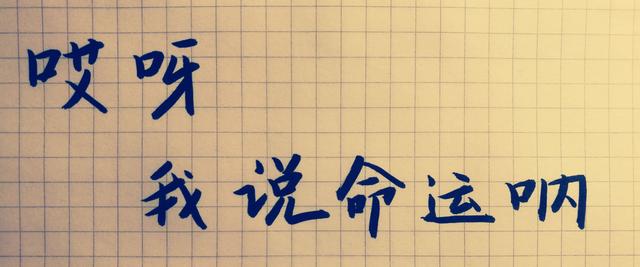 哎呀
我说命运呐